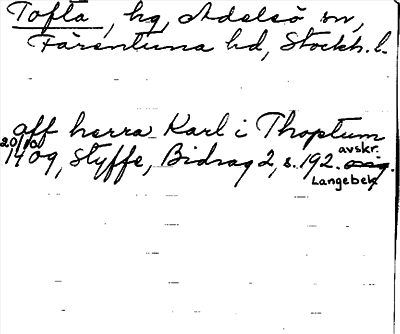 Tofta, hg, Adelsö sn,
Färentuna hd, Stockh. l.
aff herra Karl i Thoptum
20/10
1409, Styffe, Bidrag 2, s. 192. avskr.
Langebek